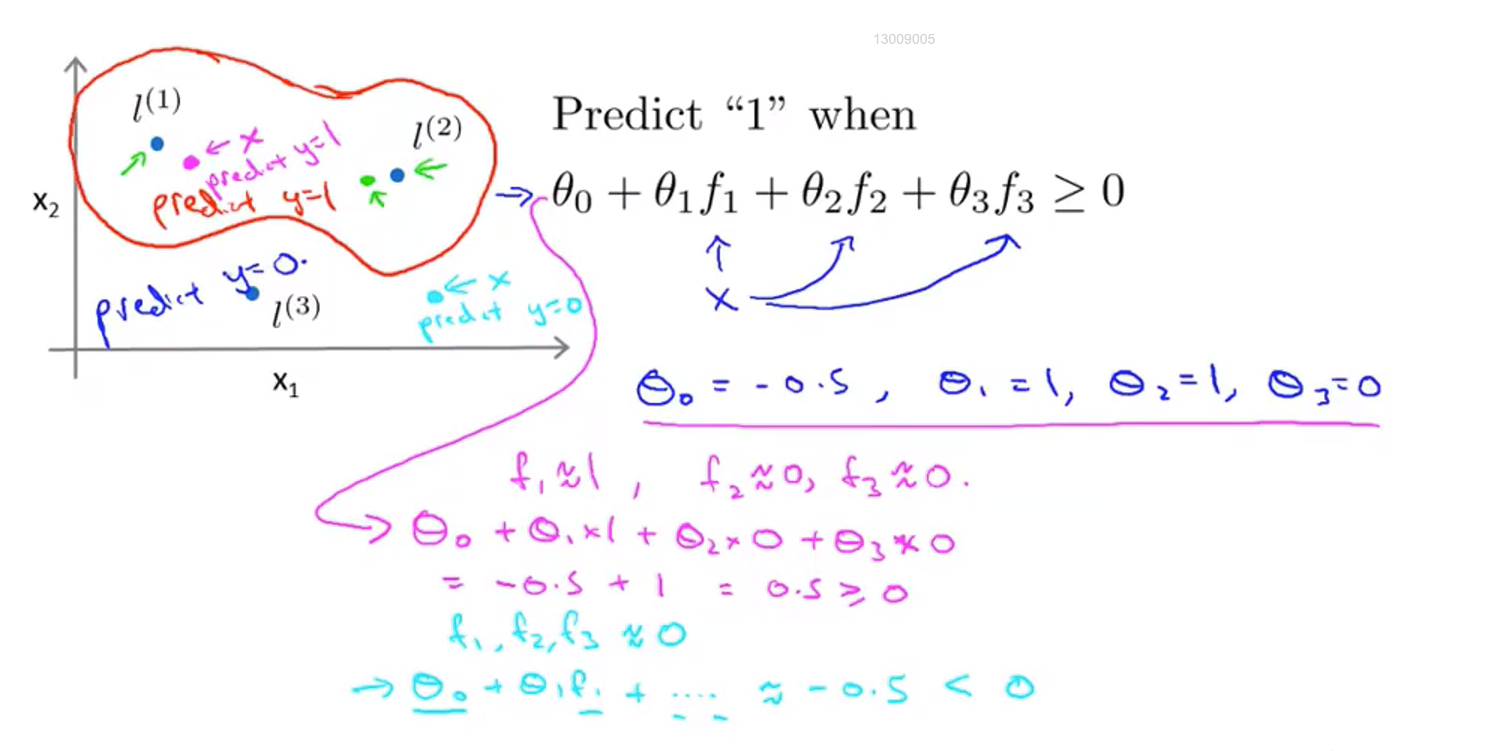 13009005
l^(1)
← x
predict y=1
l^(2)
predict y=1
x₂
predict y=0.
l^(3)
← x
predict y=0
x₁
Predict “1” when
→ θ₀ + θ₁f₁ + θ₂f₂ + θ₃f₃ ≥ 0
x
θ₀ = -0.5, θ₁ = 1, θ₂ = 1, θ₃ = 0
f₁ ≈ 1, f₂ ≈ 0, f₃ ≈ 0.
→ θ₀ + θ₁ × 1 + θ₂ × 0 + θ₃ × 0
= -0.5 + 1 = 0.5 ≥ 0
f₁, f₂, f₃ ≈ 0
→ θ₀ + θ₁f₁ + .... ≈ -0.5 < 0